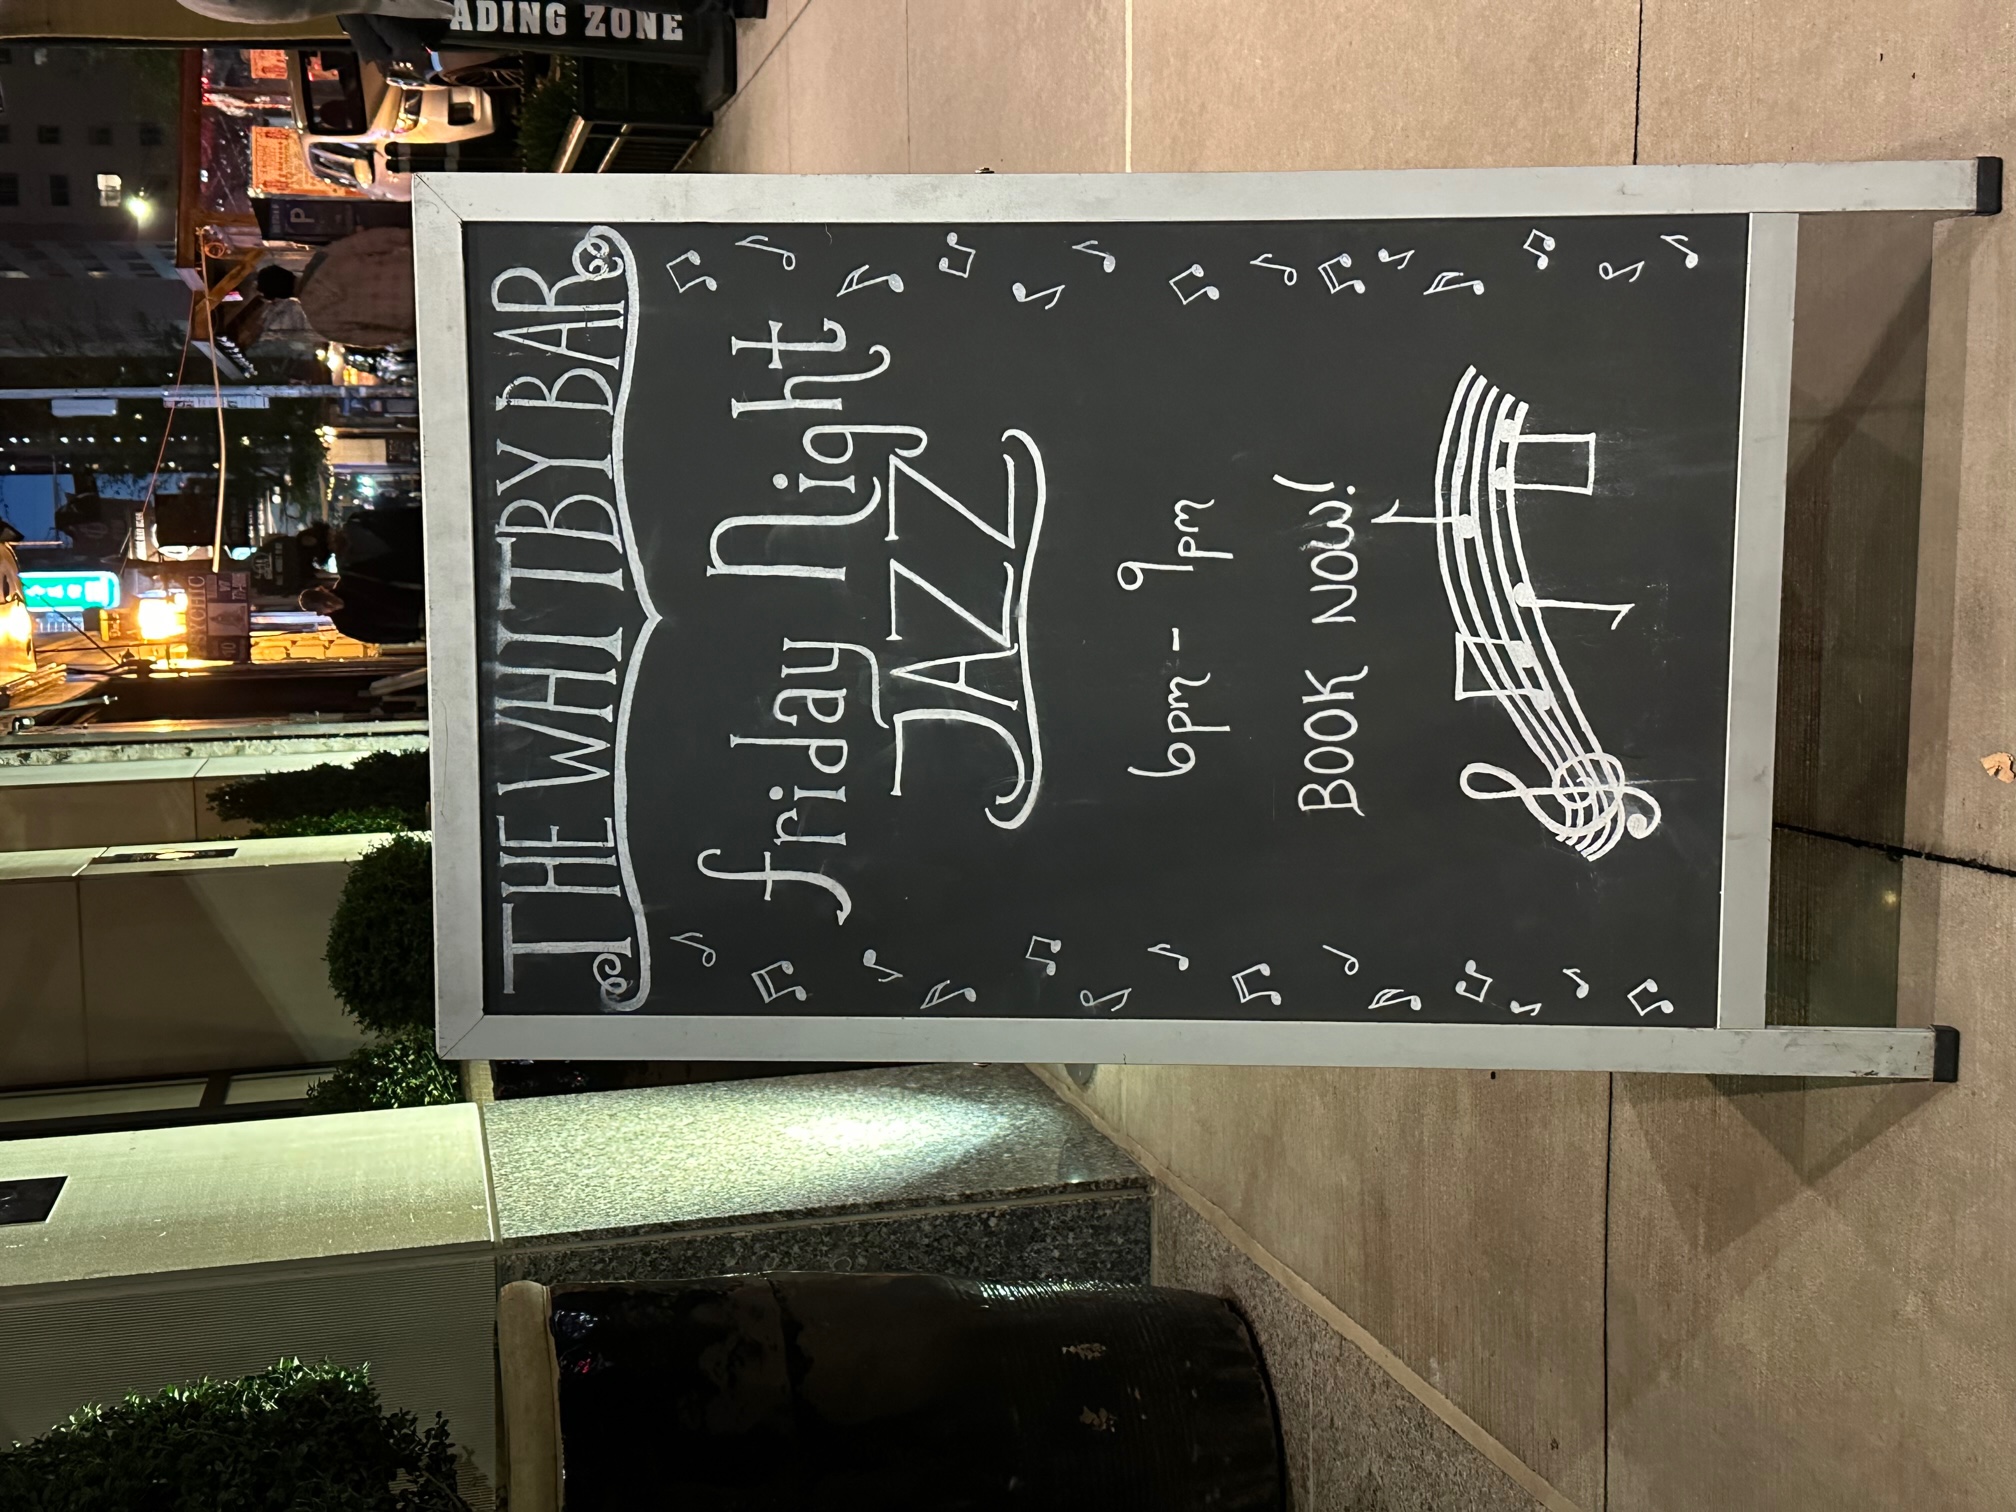 THE WHITBY BAR
Friday Night
JAZZ
6pm - 9pm
BOOK NOW!
ADING ZONE
P